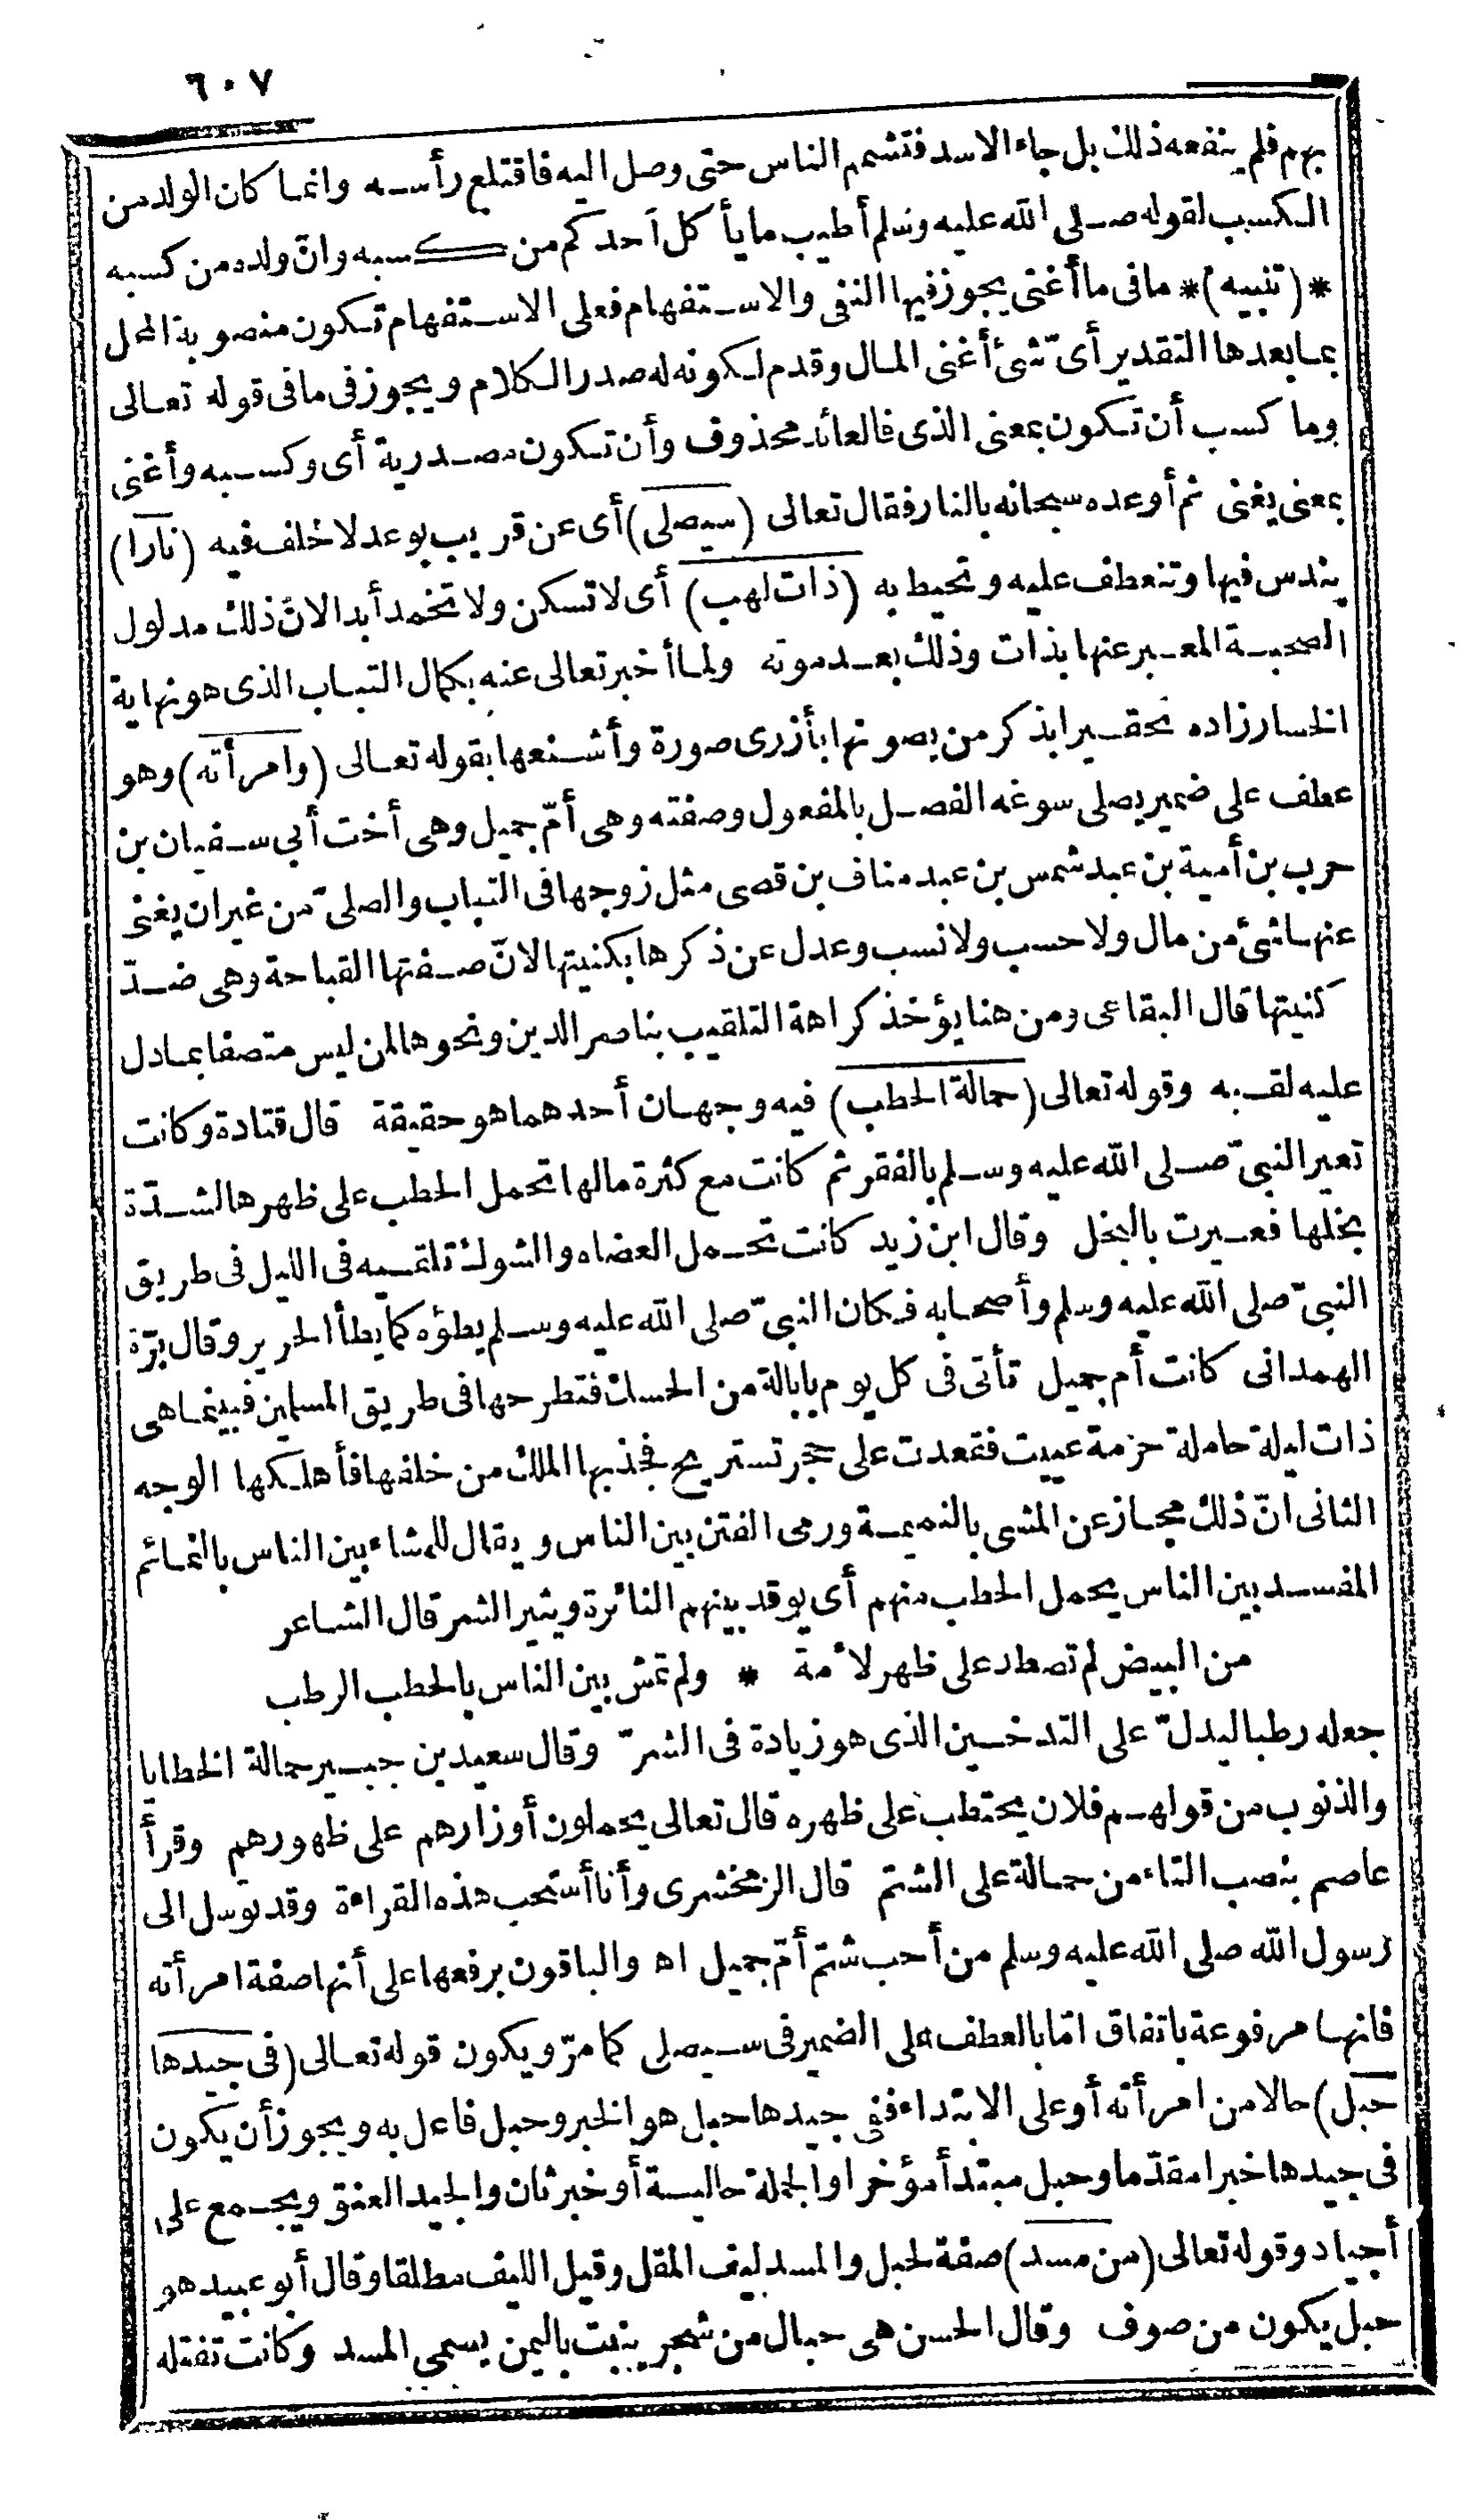 ٦٠٧
بهم فلم ينفعه ذلك بل جاء الاسد فتشمم الناس حتى وصل اليه فاقتلع رأسه وانما كان الولد من
الكسب لقوله صلى الله عليه وسلم أطيب ما يأكل أحدكم من كسبه وانّ ولده من كسبه
*(تنبيه)* ما فى ما أغنى يجوز فيها النفى والاستفهام فعلى الاستفهام تكون منصوبة المحل
بما بعدها التقدير أىّ شئ أغنى المال وقدم لكونه له صدر الكلام ويجوز فى ما فى قوله تعالى
وما كسب أن تكون بمعنى الذى فالعائد محذوف وأن تكون مصدرية أى وكسبه وأغنى
بمعنى يغنى ثم أوعده سبحانه بالنار فقال تعالى (سيصلى) أى عن قريب بوعد لا خلف فيه (نارا)
يندس فيها وتنعطف عليه وتحيط به (ذات لهب) أى لا تسكن ولا تخمد أبدا لانّ ذلك مدلول
الصحبة المعبر عنها بذات وذلك بعد موته ولما أخبر تعالى عنه بكمال التباب الذى هو نهاية
الخسار زاده تحقيرا بذكر من يصونها بأزرى صورة وأشنعها بقوله تعالى (وامرأته) وهو
عطف على ضمير يصلى سوغه الفصل بالمفعول وصفته وهى أمّ جميل وهى أخت أبى سفيان بن
حرب بن أمية بن عبد شمس بن عبد مناف بن قصى مثل زوجها فى التباب والصلىّ من غير ان يغنى
عنها شئ من مال ولا حسب ولا نسب وعدل عن ذكرها بكنيتها لانّ صفتها القباحة وهى ضدّ
كنيتها قال البقاعى ومن هنا يؤخذ كراهة التلقيب بناصر الدين ونحوها لمن ليس متصفا بما دل
عليه لقبه وقوله تعالى (حمالة الحطب) فيه وجهان أحدهما هو حقيقة قال قتادة وكانت
تعير النبىّ صلى الله عليه وسلم بالفقر ثم كانت مع كثرة مالها تحمل الحطب على ظهرها لشدّة
بخلها فعيرت بالبخل وقال ابن زيد كانت تحمل العضاه والشوك تلقيه فى الليل فى طريق
النبىّ صلى الله عليه وسلم وأصحابه فكان النبىّ صلى الله عليه وسلم يطؤه كما يطأ الحرير وقال برّة
الهمدانى كانت أم جميل تأتى فى كل يوم بابالة من الحسك فتطرحها فى طريق المسلمين فبينما هى
ذات ليلة حاملة حزمة عييت فقعدت على حجر تستريح فجذبها الملك من خلفها فأهلكها الوجه
الثانى انّ ذلك مجاز عن المشى بالنميمة ورمى الفتن بين الناس ويقال للمشاء بين الناس بالنمائم
المفسد بين الناس يحمل الحطب منهم أى يوقد بينهم النائرة ويثير الشر قال الشاعر
من البيض لم تصطد على ظهر لأمة * ولم تمش بين الناس بالحطب الرطب
جعله رطبا ليدلّ على التدخين الذى هو زيادة فى الشرّ وقال سعيد بن جبير حمالة الخطايا
والذنوب من قولهم فلان يحتطب على ظهره قال تعالى يحملون أوزارهم على ظهورهم وقرأ
عاصم بنصب التاء من حمالة على الشتم قال الزمخشرى وأنا أستحب هذه القراءة وقد توسل الى
رسول الله صلى الله عليه وسلم من أحب شتم أمّ جميل اه والباقون برفعها على أنها صفة امرأته
فانها مرفوعة باتفاق امّا بالعطف على الضمير فى سيصلى كما مرّ ويكون قوله تعالى (فى جيدها
حبل) حالا من امرأته أو على الابتداء ففى جيدها حبل هو الخبر وحبل فاعل به ويجوز أن يكون
فى جيدها خبرا مقدّما وحبل مبتدأ مؤخرا والجملة حالية أو خبر ثان والجيد العنق ويجمع على
أجياد وقوله تعالى (من مسد) صفة لحبل والمسد ليف المقل وقيل الليف مطلقا وقال أبو عبيد هو
حبل يكون من صوف وقال الحسن هى حبال من شجر ينبت باليمن يسمى المسد وكانت تفتله